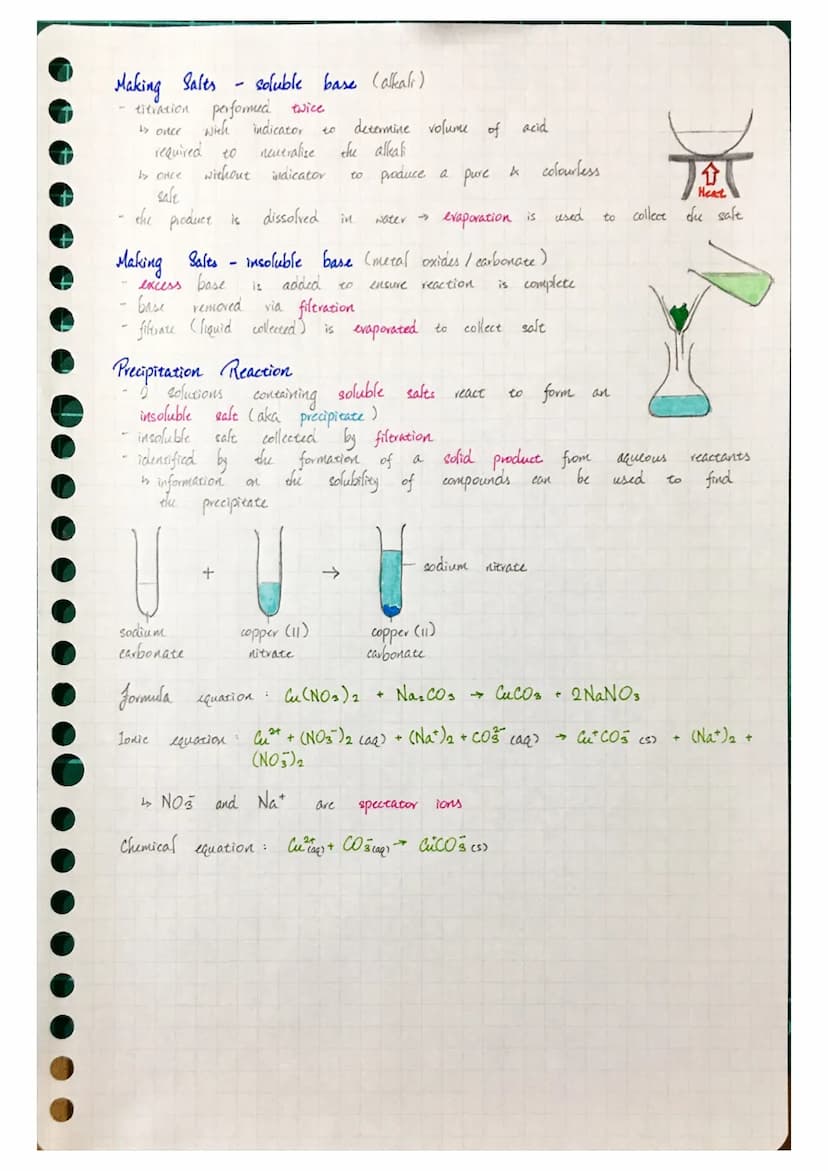 Making Salts - soluble base (alkali)
- titration performed twice
↳ once with indicator to determine volume of acid
required to neutralise the alkali
↳ once without indicator to produce a pure & colourless
salt
- the product is dissolved in water → evaporation is used to collect the salt
Heat
Making Salts - insoluble base (metal oxides / carbonate)
- excess base is added to ensure reaction is complete
- base removed via filtration
- filtrate (liquid collected) is evaporated to collect salt
Precipitation Reaction
- 2 solutions containing soluble salts react to form an
insoluble salt (aka precipitate)
- insoluble salt collected by filtration
- identified by the formation of a solid product from aqueous reactants
↳ information on the solubility of compounds can be used to find
the precipitate
+ → sodium nitrate
sodium copper (II) copper (II)
carbonate nitrate carbonate
Formula equation : Cu(NO₃)₂ + Na₂CO₃ → CuCO₃ + 2NaNO₃
Ionic equation : Cu²⁺ + (NO₃⁻)₂ (aq) + (Na⁺)₂ + CO₃²⁻ (aq) → Cu⁺CO₃⁻ (s) + (Na⁺)₂ +
(NO₃⁻)₂
↳ NO₃⁻ and Na⁺ are spectator ions
Chemical equation : Cu²⁺(aq) + CO₃⁻(aq) → Cu⁺CO₃⁻ (s)